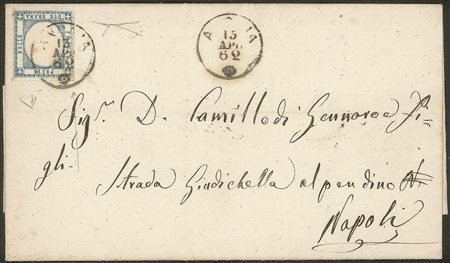 15
APR
62
Sig.r D. Camillo di Gennaro e Fi=
gli.
Strada Giudichella al pendino
Napoli